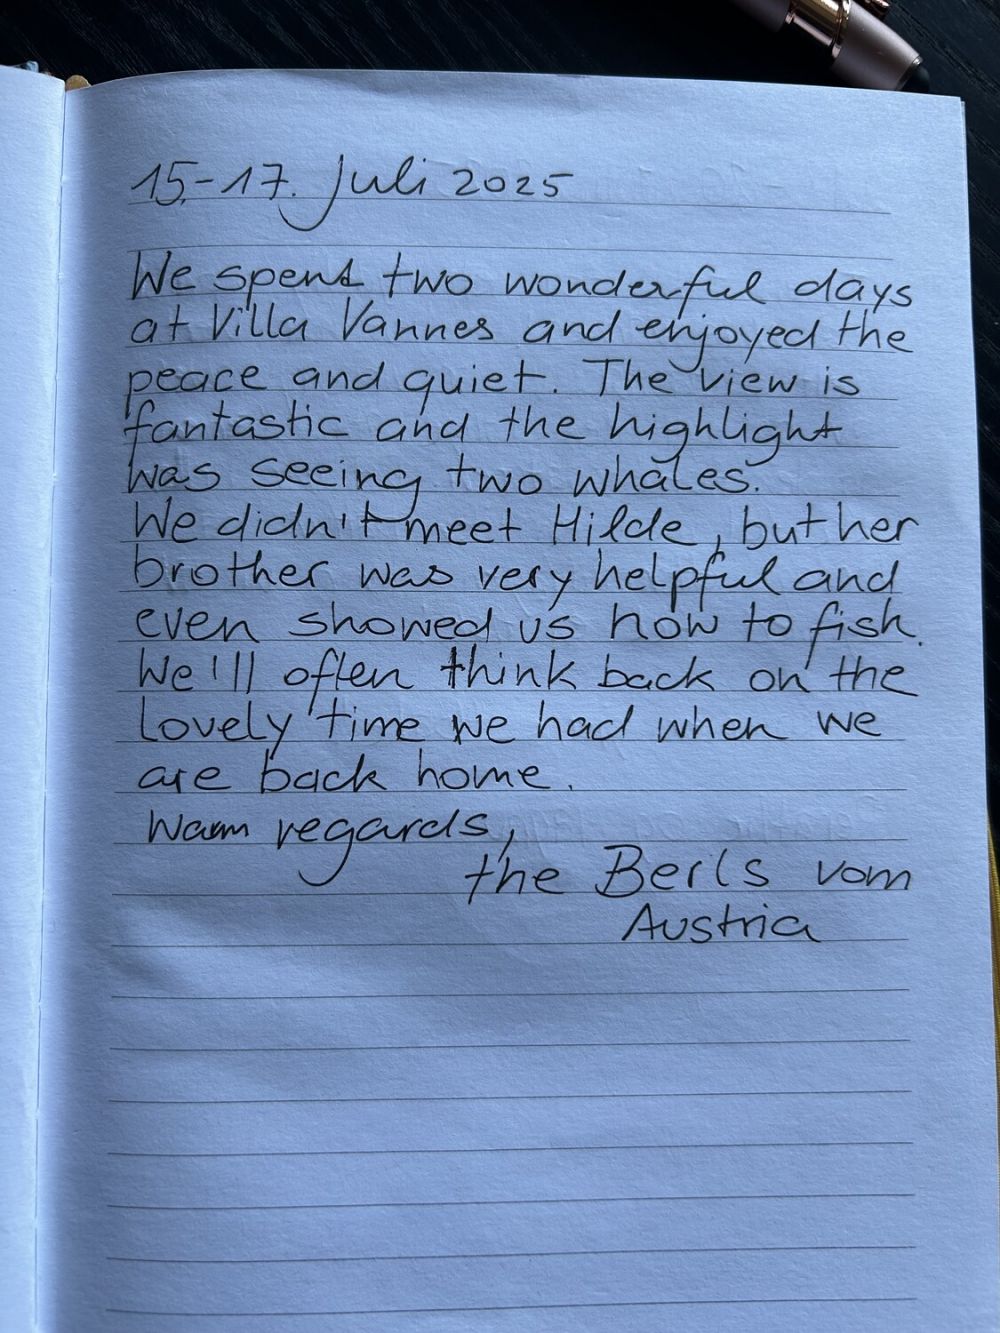 15.-17. Juli 2025
We spent two wonderful days
at Villa Vannes and enjoyed the
peace and quiet. The view is
fantastic and the highlight
was seeing two whales.
We didn't meet Hilde, but her
brother was very helpful and
even showed us how to fish.
We'll often think back on the
lovely time we had when we
are back home.
Warm regards,
the Berls vom
Austria